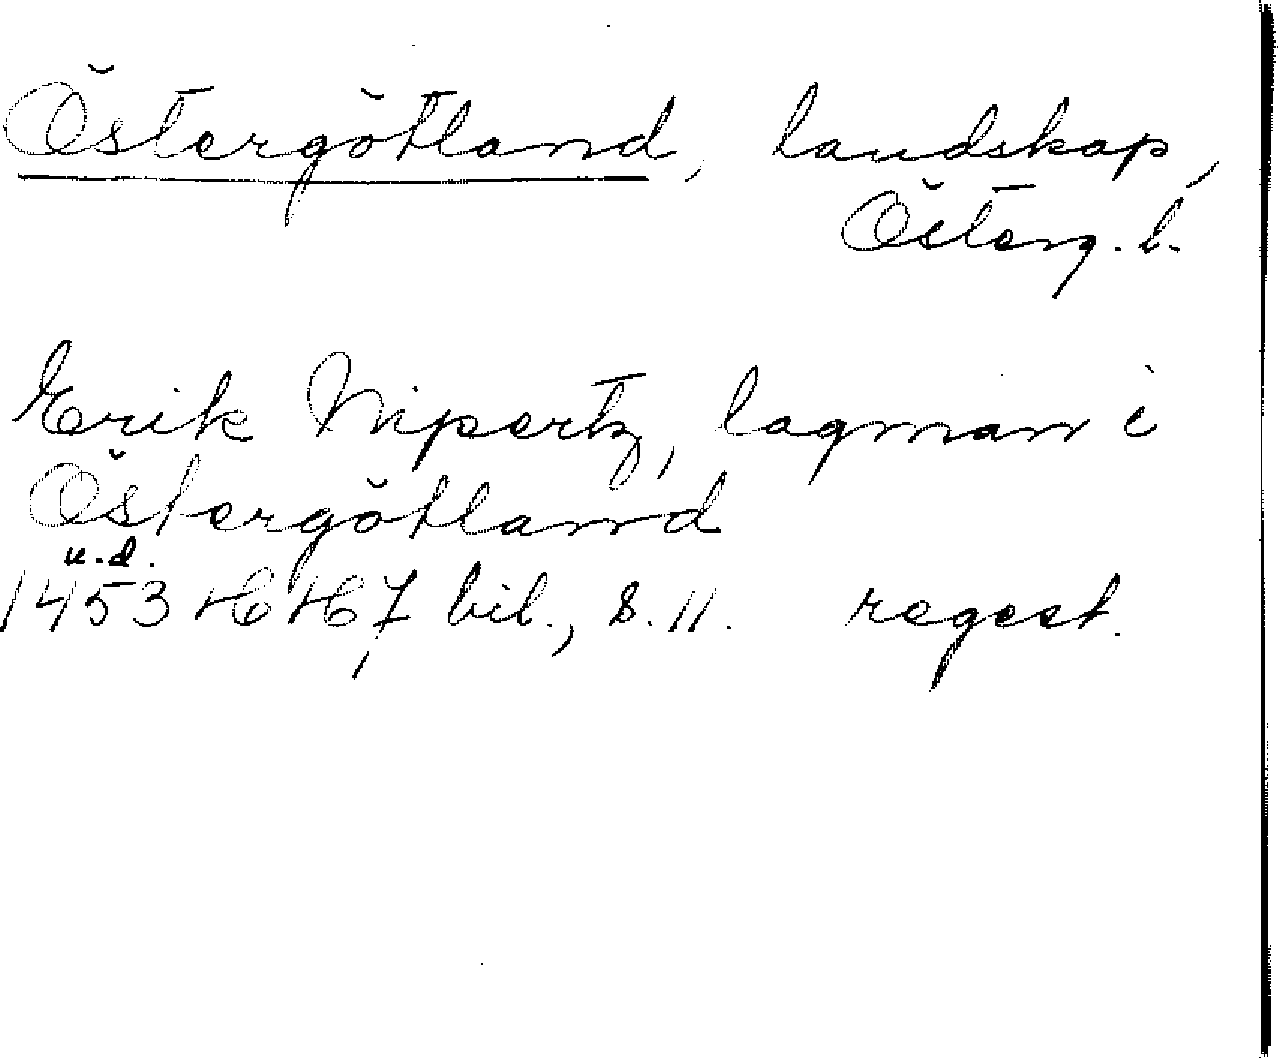 Östergötland, landskap,
Österg. l.
Erik Nipertz, lagman i
Östergötland
u.d.
1453 HH 7, bil., s. 11. regest.